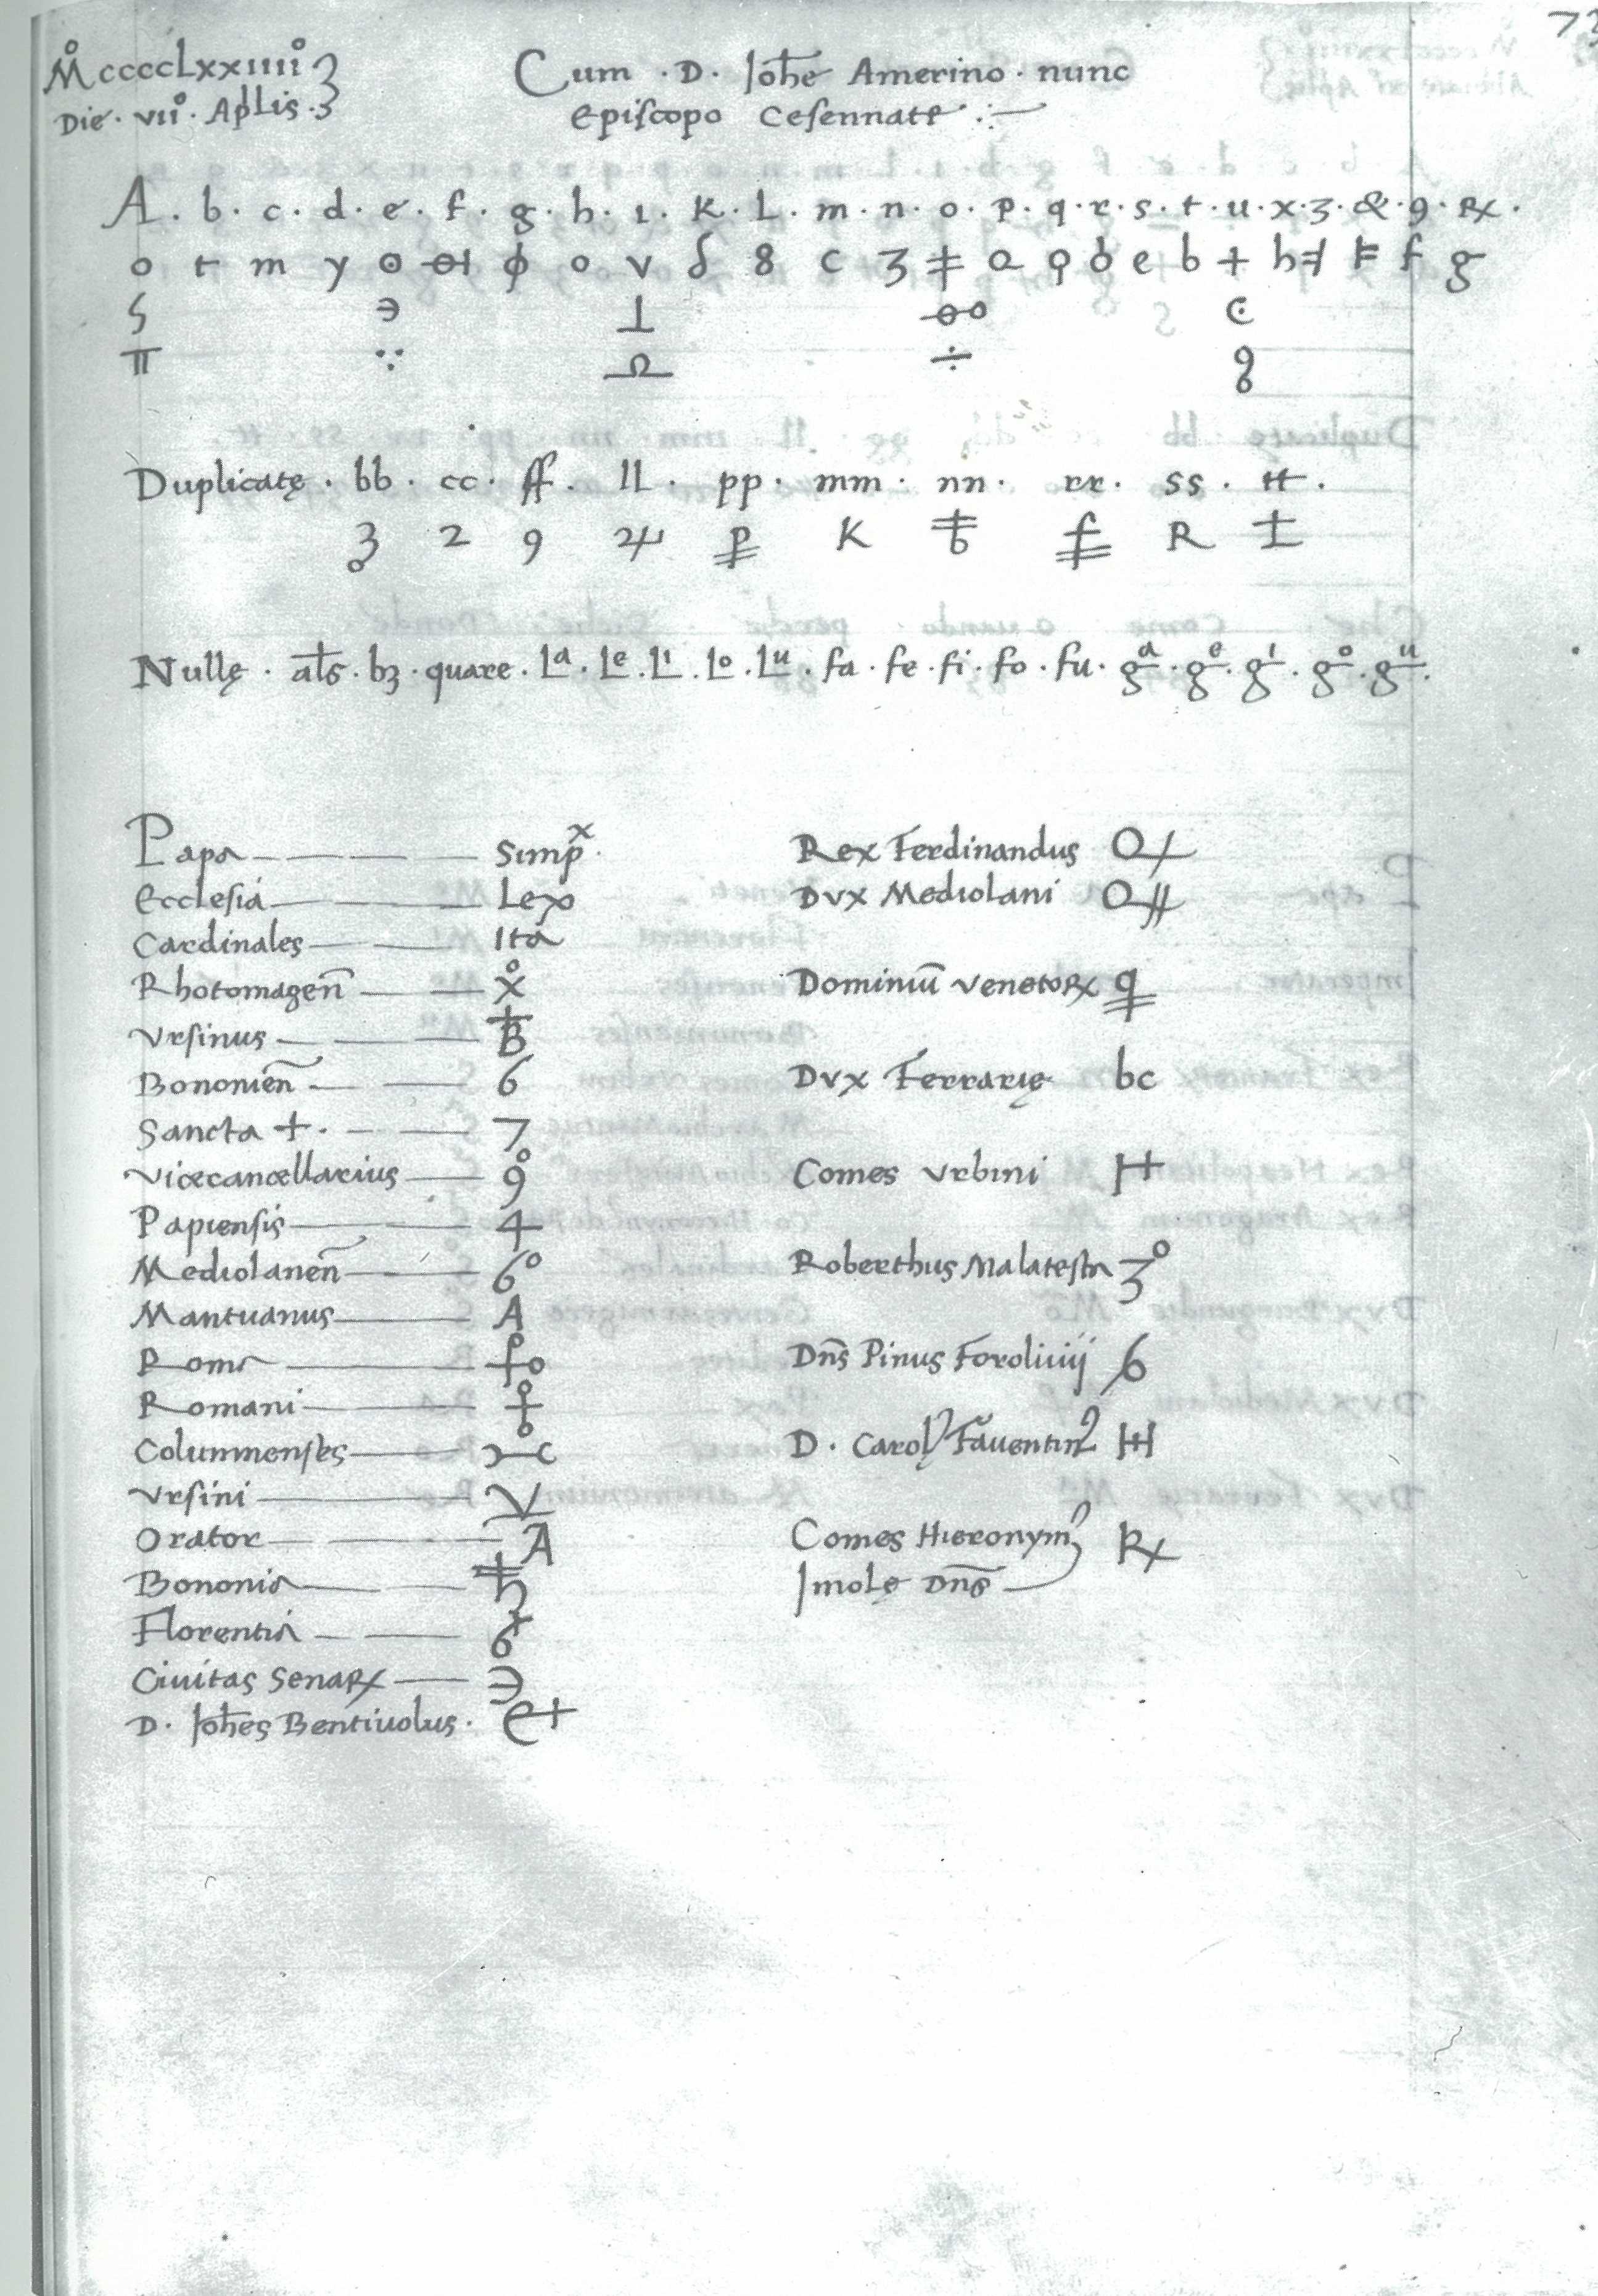 73
M̊ccccLxxıııı̊
Die · vıı̊ · Ap̄lis ·
Cum · D · Joh̄e Amerino · nunc
Episcopo Cesennatẹ :—
A · b · c · d · e · f · g · h · ı · K · L · m · n · o · p · q · r · s · t · u · x · ʒ · & · 9 · ꝶ ·
o t m y ⊙ ϕ o v δ 8 c ʒ ǂ a q d e b + h f g
ᔕ ϶ ⊥ ☉
π ∵ Ω ÷ 8
Duplicatę · bb · cc · ff · ll · pp · mm · nn · rr · ss · tt ·
ʒ 2 9 ♃ p K ǂ f R ±
Nullę · al̄s · bʒ · quare · Lᵃ · Lᵉ · Lⁱ · Lᵒ · Lᵘ · fa · fe · fi · fo · fu · gᵃ · gᵉ · gⁱ · gᵒ · gᵘ ·
Papa — — — — sımpˣ ·
Ecclesia — — — Lex
Cardinales — — Ita
Rhotomagen̄ — — x̊
Vrsinus — — — B
Bononien̄ — — 6
Sancta + · — — 7
Vicecancellarius — 9̊
Papiensis — 4
Mediolanen̄ — 6°
Mantuanus — A
Roma — fo
Romani — ♀
Columnenses —
Vrsini — V
Orator — — Ā
Bononia — — ♄
Florentia — — 6
Ciuitas Senaꝶ — Э
D · Joh̄es Bentiuolus · e+
Rex Ferdinandus
Dvx Mediolani
Dominiū Venetoꝶ q
Dvx Ferrarię bc
Comes Vrbini H
Roberthus Malatesta ʒ°
Dn̄s Pinus Foroliuij 6
D · Carolꝰ Fauentinꝰ
Comes Hieronymꝰ ꝶ
Jmolę Dn̄s